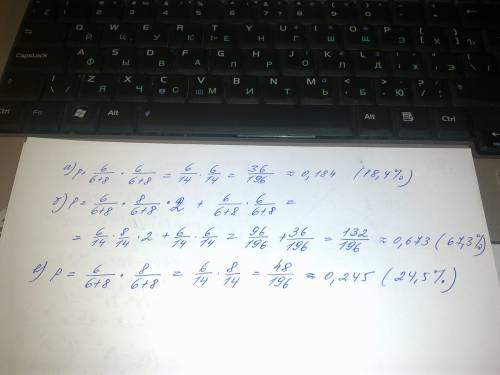 Q W E R T Y U I O P { [ } ]
Й Ц У К Е Н Г Ш Щ З Х Ъ
CapsLock A S D F G H J K L
Ф Ы В А П Р О Л Д Ж Э
Z X C V B N M < > ?
Я Ч С М И Т Ь Б Ю
Ctrl Fn Alt Alt Ctrl
а) p= 6/(6+8) · 6/(6+8) = 6/14 · 6/14 = 36/196 ≈ 0,184 (18,4%)
б) p = 6/(6+8) · 8/(6+8) · 2 + 6/(6+8) · 6/(6+8) =
= 6/14 · 8/14 · 2 + 6/14 · 6/14 = 96/196 + 36/196 = 132/196 ≈ 0,673 (67,3%)
в) p = 6/(6+8) · 8/(6+8) = 6/14 · 8/14 = 48/196 ≈ 0,245 (24,5%)